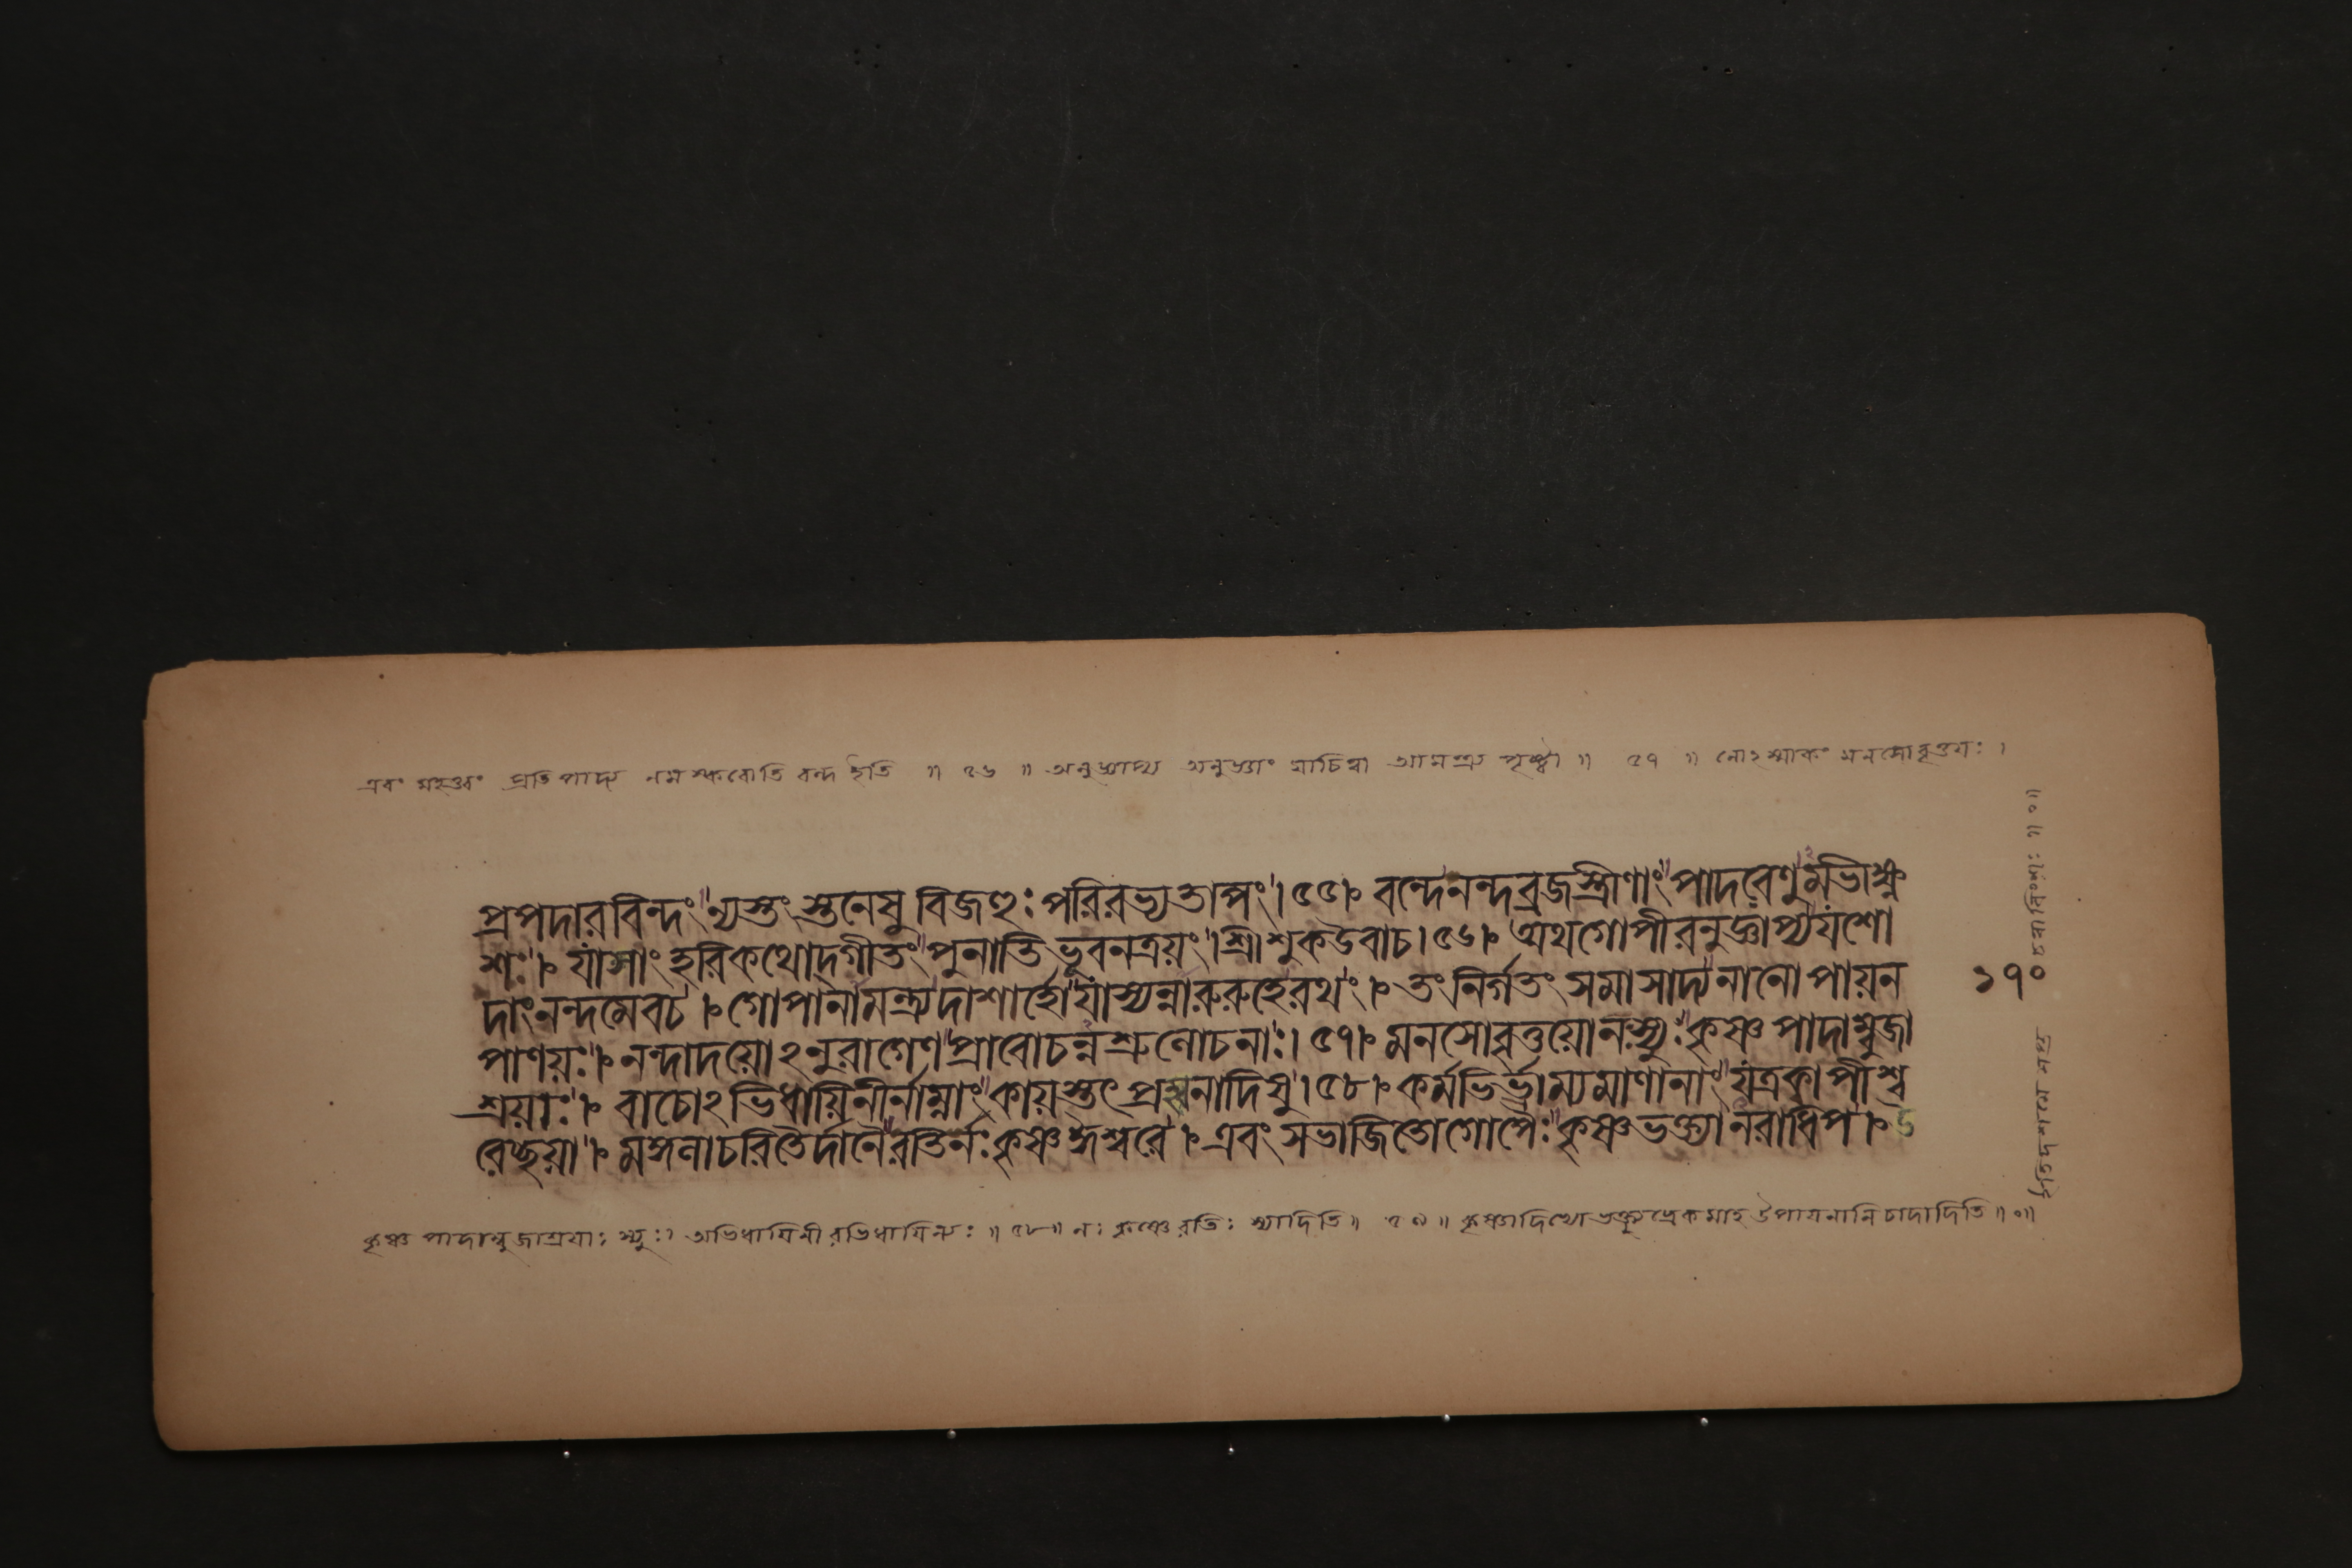 এবং মহত্ত্বং প্রতিপাদ্য নমস্করোতি বন্দ ইতি ॥ ৫৬ ॥ অনুজ্ঞাপ্য অনুজ্ঞাং যাচিত্বা আমন্ত্র্য পৃষ্ট্বা ॥ ৫৭ ॥ নোঽস্মাকং মনসোবৃত্তয়ঃ ।
প্রপদারবিন্দং ন্যস্তং স্তনেষু বিজহুঃ পরিরভ্য তাপং । ৫৫ । বন্দেনন্দব্রজস্ত্রীণাং পাদরেণুমভীক্ষ্ণ
শঃ । যাসাং হরিকথোদ্গীতং পুনাতি ভুবনত্রয়ং । শ্রীশুকউবাচ । ৫৬ । অথগোপীরনুজ্ঞাপ্যযশো
দাংনন্দমেবচ । গোপানামন্ত্র্যদাশার্হোযাস্যন্নারুরুহেরথং । তংনির্গতং সমাসাদ্যনানোপায়ন
পাণয়ঃ । নন্দাদয়োঽনুরাগেণ প্রাবোচন্নশ্রুলোচনাঃ । ৫৭ । মনসোবৃত্তয়োনঃস্যুঃ কৃষ্ণ পাদাম্বুজা
শ্রয়াঃ । বাচোঽভিধায়িনীর্নাম্নাং কায়স্তৎ প্রহ্বনাদিষু । ৫৮ । কর্মভির্ভ্রাম্যমাণানাং যত্রক্বাপীশ্ব
রেচ্ছয়া । মঙ্গলাচরিতৈর্দানৈরতির্নঃ কৃষ্ণঈশ্বরে । এবং সভাজিতোগোপৈঃ কৃষ্ণভক্ত্যানরাধিপ ।
১৭০
কৃষ্ণ পাদাম্বুজাশ্রয়াঃ স্যুঃ । অভিধায়িনীরভিধায়িন্যঃ ॥ ৫৮ ॥ নঃ কৃষ্ণেরতিঃ স্যাদিতি ॥ ৫৯ ॥ উপায়নানিচাদাদিতি ॥ ০ ॥
ইতিদশমে